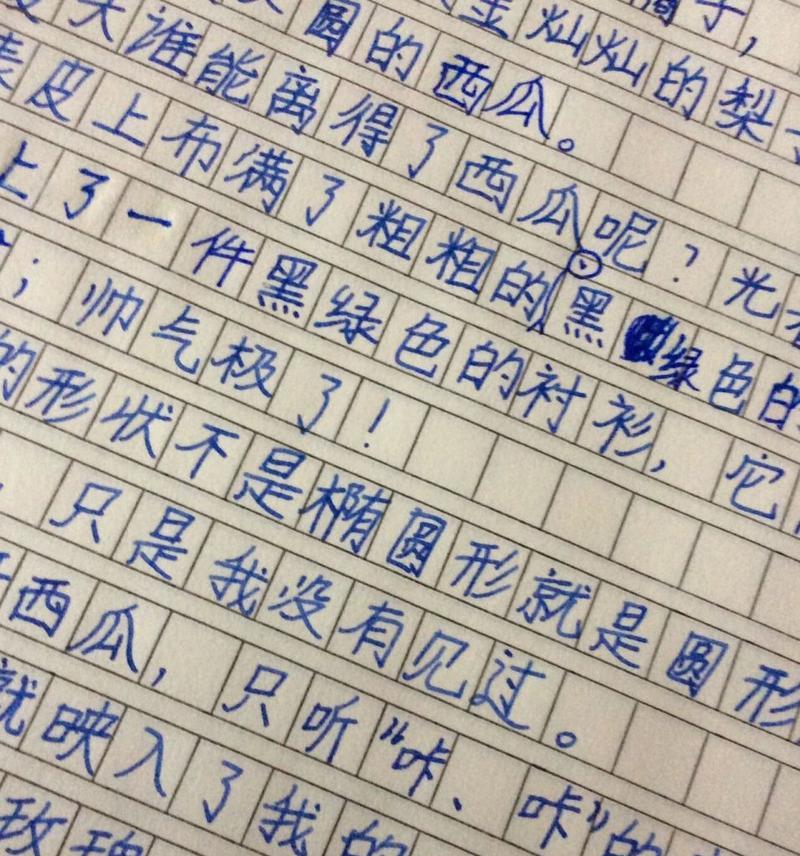 子，
金灿灿的梨
圆的西瓜。
天谁能离得了西瓜呢？光
皮上布满了粗粗的黑绿色的
上了一件黑绿色的衬衫，它
；帅气极了！
的形状不是椭圆形就是圆形
，只是我没有见过。
西瓜，只听“咔、咔”的
就映入了我的
玫瑰